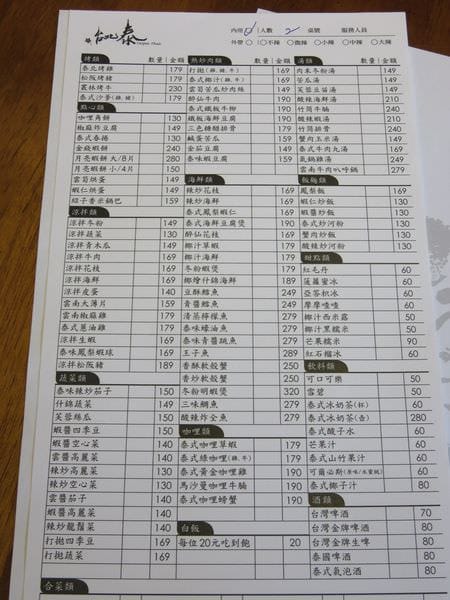 台北泰
Taipei Thai
內用 人數 2 桌號 服務人員
外帶 □不辣 □微辣 □小辣 □中辣 □大辣
烤類 數量 金額
泰北烤雞 179
松阪烤豬 179
叢林烤牛 230
泰式沙爹(雞.豬) 179
點心類
咖哩角餅 130
椒麻炸豆腐 149
泰式春捲 130
金錢蝦餅 240
月亮蝦餅 大/8片 280
月亮蝦餅 小/4片 150
雲筍烘蛋 149
蝦仁烘蛋 149
紹子香米鍋巴 159
涼拌類
涼拌冬粉 149
涼拌蔬菜 130
涼拌青木瓜 149
涼拌牛肉 169
涼拌花枝 169
涼拌海鮮 169
涼拌皮蛋 140
雲南大薄片 159
雲南椒麻雞 179
泰式蔥油雞 179
涼拌生蝦 169
泰味鳳梨蝦球 169
涼拌松阪豬 189
蔬菜類
泰味辣炒茄子 150
什錦蔬菜 150
芙蓉絲瓜 150
蝦醬四季豆 150
蝦醬空心菜 140
雲醬高麗菜 140
辣炒高麗菜 130
辣炒空心菜 130
雲醬茄子 140
蝦醬高麗菜 140
辣炒龍鬚菜 140
打拋四季豆 169
打拋蔬菜 169
合菜類
熱炒肉類 數量 金額
打拋(雞.豬.牛) 169
泰式椰汁(雞.牛) 169
雲筍苦瓜炒肉絲 149
醉仙牛肉 190
泰式鐵板牛柳 190
鐵板海鮮豆腐 190
三色糖醋排骨 179
鹹蛋苦瓜 149
金茄豆腐 149
泰味蝦豆腐 159
海鮮類
辣炒花枝 169
辣炒海鮮 169
泰式鳳梨蝦仁 169
泰式海鮮豆腐煲 179
醉仙花枝 190
椰汁草蝦 179
椰汁海鮮 179
冬粉蝦煲 179
椰燴什錦海鮮 189
豆酥鱈魚 250
青醬鱈魚 250
清蒸檸檬魚 279
泰味蠔油魚 279
泰味青醬跳魚 279
王子魚 289
香酥軟殼蟹 250
香炒軟殼蟹 250
冬粉明蝦煲 320
三味鯛魚 250
酸辣炸全魚 279
咖哩類
泰式咖哩草蝦 179
泰式綠咖哩(雞.牛) 179
泰式黃金咖哩雞 190
馬沙曼咖哩牛腩 190
泰式咖哩螃蟹 190
白飯
每位20元吃到飽 20
湯類 數量 金額
肉末冬粉湯 149
苦瓜湯 149
芙蓉豆苗湯 149
酸辣海鮮湯 210
竹筒牛腩 240
酸辣蝦湯 210
竹筒排骨 240
蟹肉玉米湯 149
泰式牛肉丸湯 169
氣鍋雞湯 249
雲南牛肉叭呼鍋 279
飯麵類
鳳梨飯 169
蝦仁炒飯 130
蝦醬炒飯 130
泰式炒河粉 130
蟹肉炒飯 130
酸辣炒河粉 130
甜點類
紅毛丹 60
菠蘿蜜冰 60
亞答軟冰 60
摩摩喳喳 60
椰汁西米露 50
椰汁黑糯米 50
芒果糯米 90
紅石榴冰 60
飲料類
可口可樂 50
雪碧 50
泰式冰奶茶(杯) 60
泰式冰奶茶(壺) 280
泰式酸子水 60
芒果汁 60
泰式山竹果汁 60
可爾必斯(原味/水蜜桃) 60
泰式椰子汁 60
酒類
台灣啤酒 70
台灣金牌啤酒 80
台灣金牌生啤 80
泰國啤酒 80
泰式氣泡酒 80